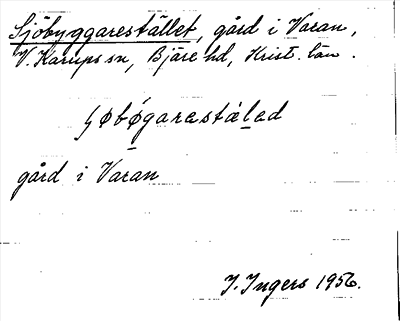 Sjöbyggarestället, gård i Varan,
V. Karups sn, Bjäre hd, Krist. län.
ʃøbø̀garestä́led
gård i Varan
I. Ingers 1956.